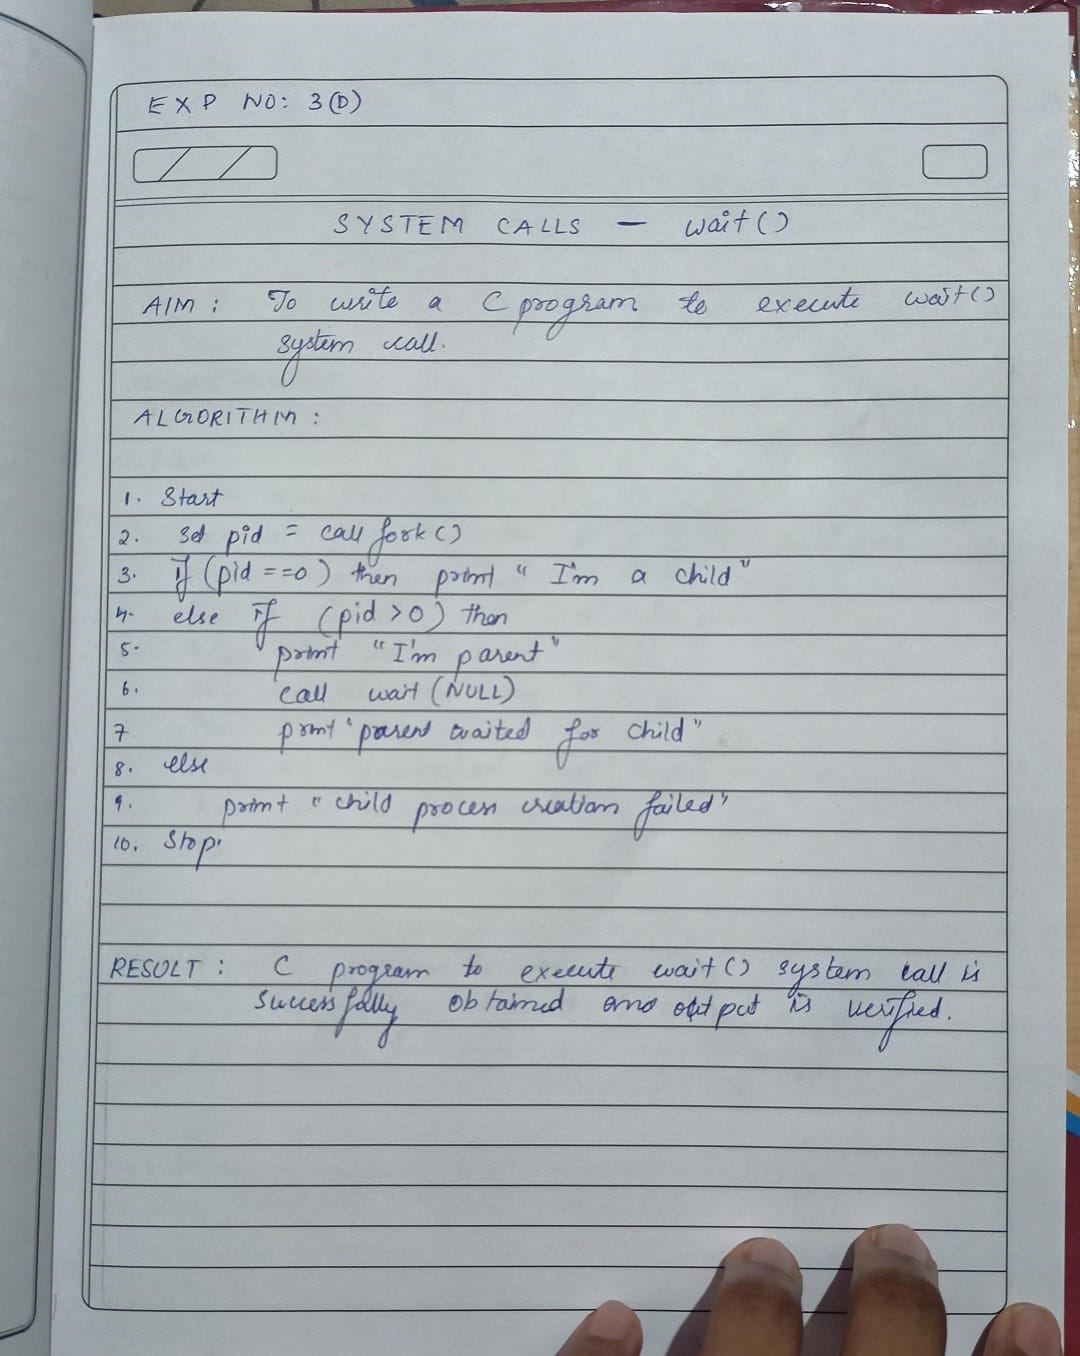 EXP NO: 3(D)
SYSTEM CALLS - wait()
AIM: To write a C program to execute wait()
system call.
ALGORITHM:
1. Start
2. set pid = call fork()
3. if (pid ==0) then print "I'm a child"
4. else if (pid >0) then
5. print "I'm parent"
6. call wait (NULL)
7 print "parent waited for child"
8. else
9. print "child process creation failed"
10. Stop.
RESULT: C program to execute wait() system call is
successfully obtained and output is verified.